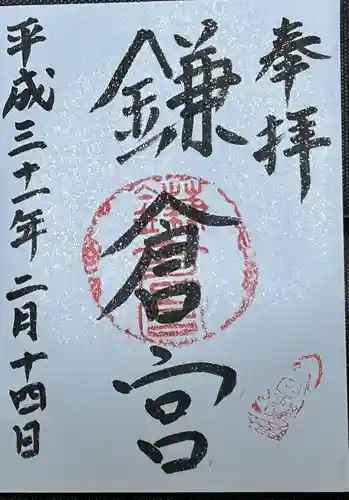 奉拝
鎌倉宮
平成三十一年二月十四日